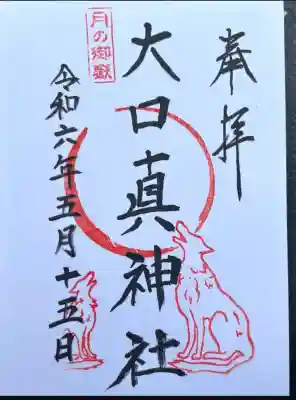 奉拝
大口真神社
月の御嶽
令和六年五月十五日